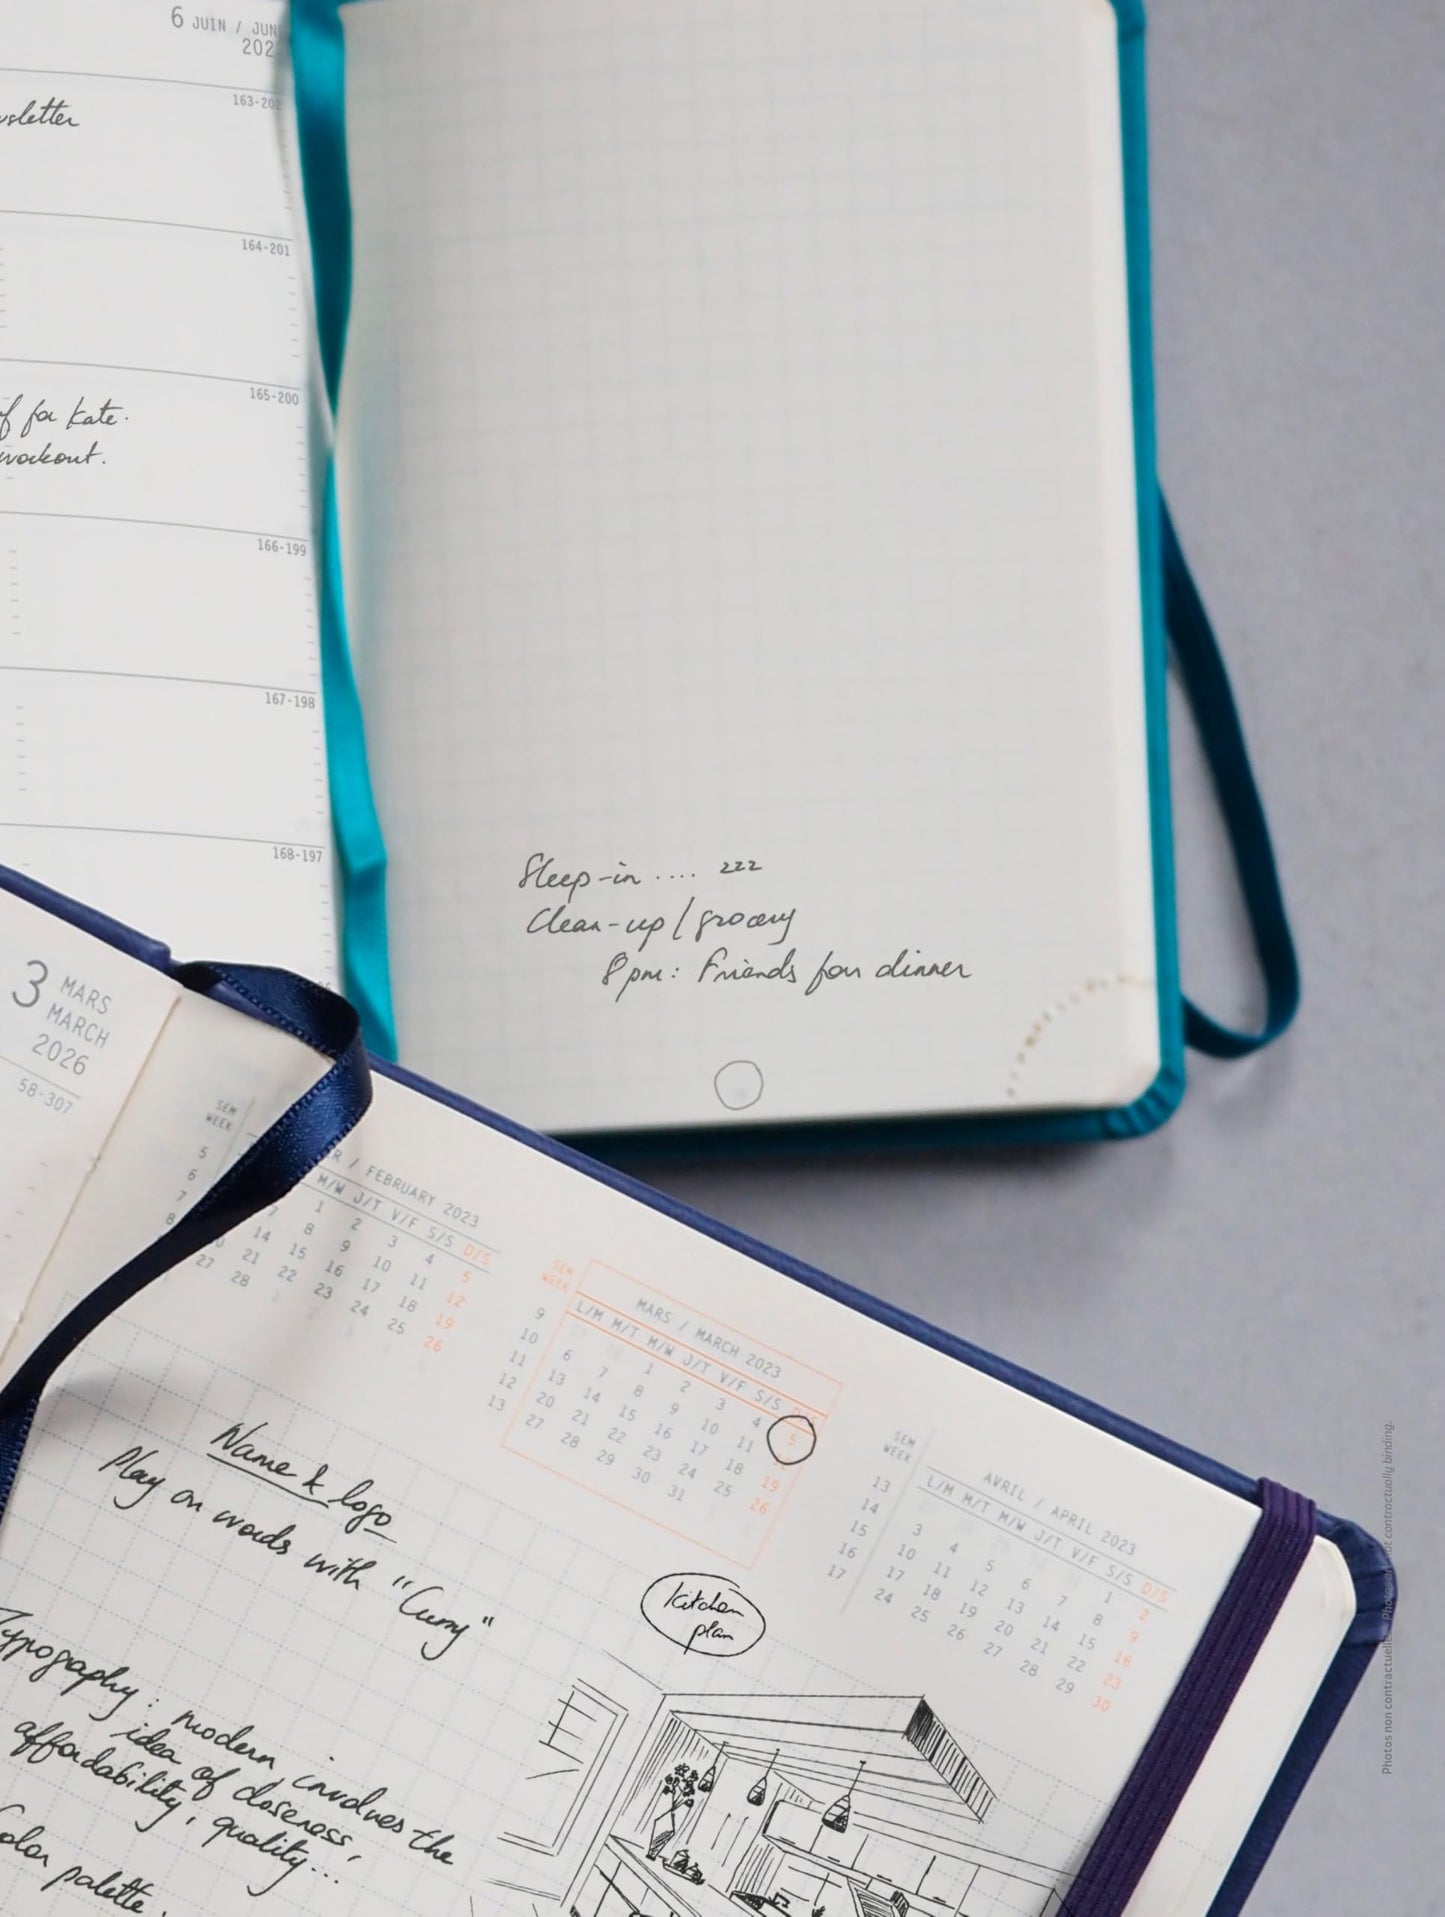 6 JUIN / JUN
202
163-202
wsletter
164-201
165-200
for Kate.
workout.
166-199
167-198
168-197
Sleep-in .... zzz
Clean-up / grocery
8pm: Friends for dinner
3 MARS
MARCH
2026
58-307
SEM
WEEK
5
6
7
8
R / FEBRUARY 2023
M/W J/T V/F S/S D/S
1 2 3 4 5
7 8 9 10 11 12
14 15 16 17 18 19
21 22 23 24 25 26
27 28
SEM
WEEK
9
10
11
12
13
MARS / MARCH 2023
L/M M/T M/W J/T V/F S/S
1 2 3 4 5
6 7 8 9 10 11
13 14 15 16 17 18 19
20 21 22 23 24 25 26
27 28 29 30 31
SEM
WEEK
13
14
15
16
17
AVRIL / APRIL 2023
L/M M/T M/W J/T V/F S/S D/S
1 2
3 4 5 6 7 8 9
10 11 12 13 14 15 16
17 18 19 20 21 22 23
24 25 26 27 28 29 30
Name & logo
Play on words with "Curry"
Typography: modern, involves the
idea of closeness,
affordability, quality...
Color palette
Kitchen
plan
Photos non contractuelles. Photos are not contractually binding.